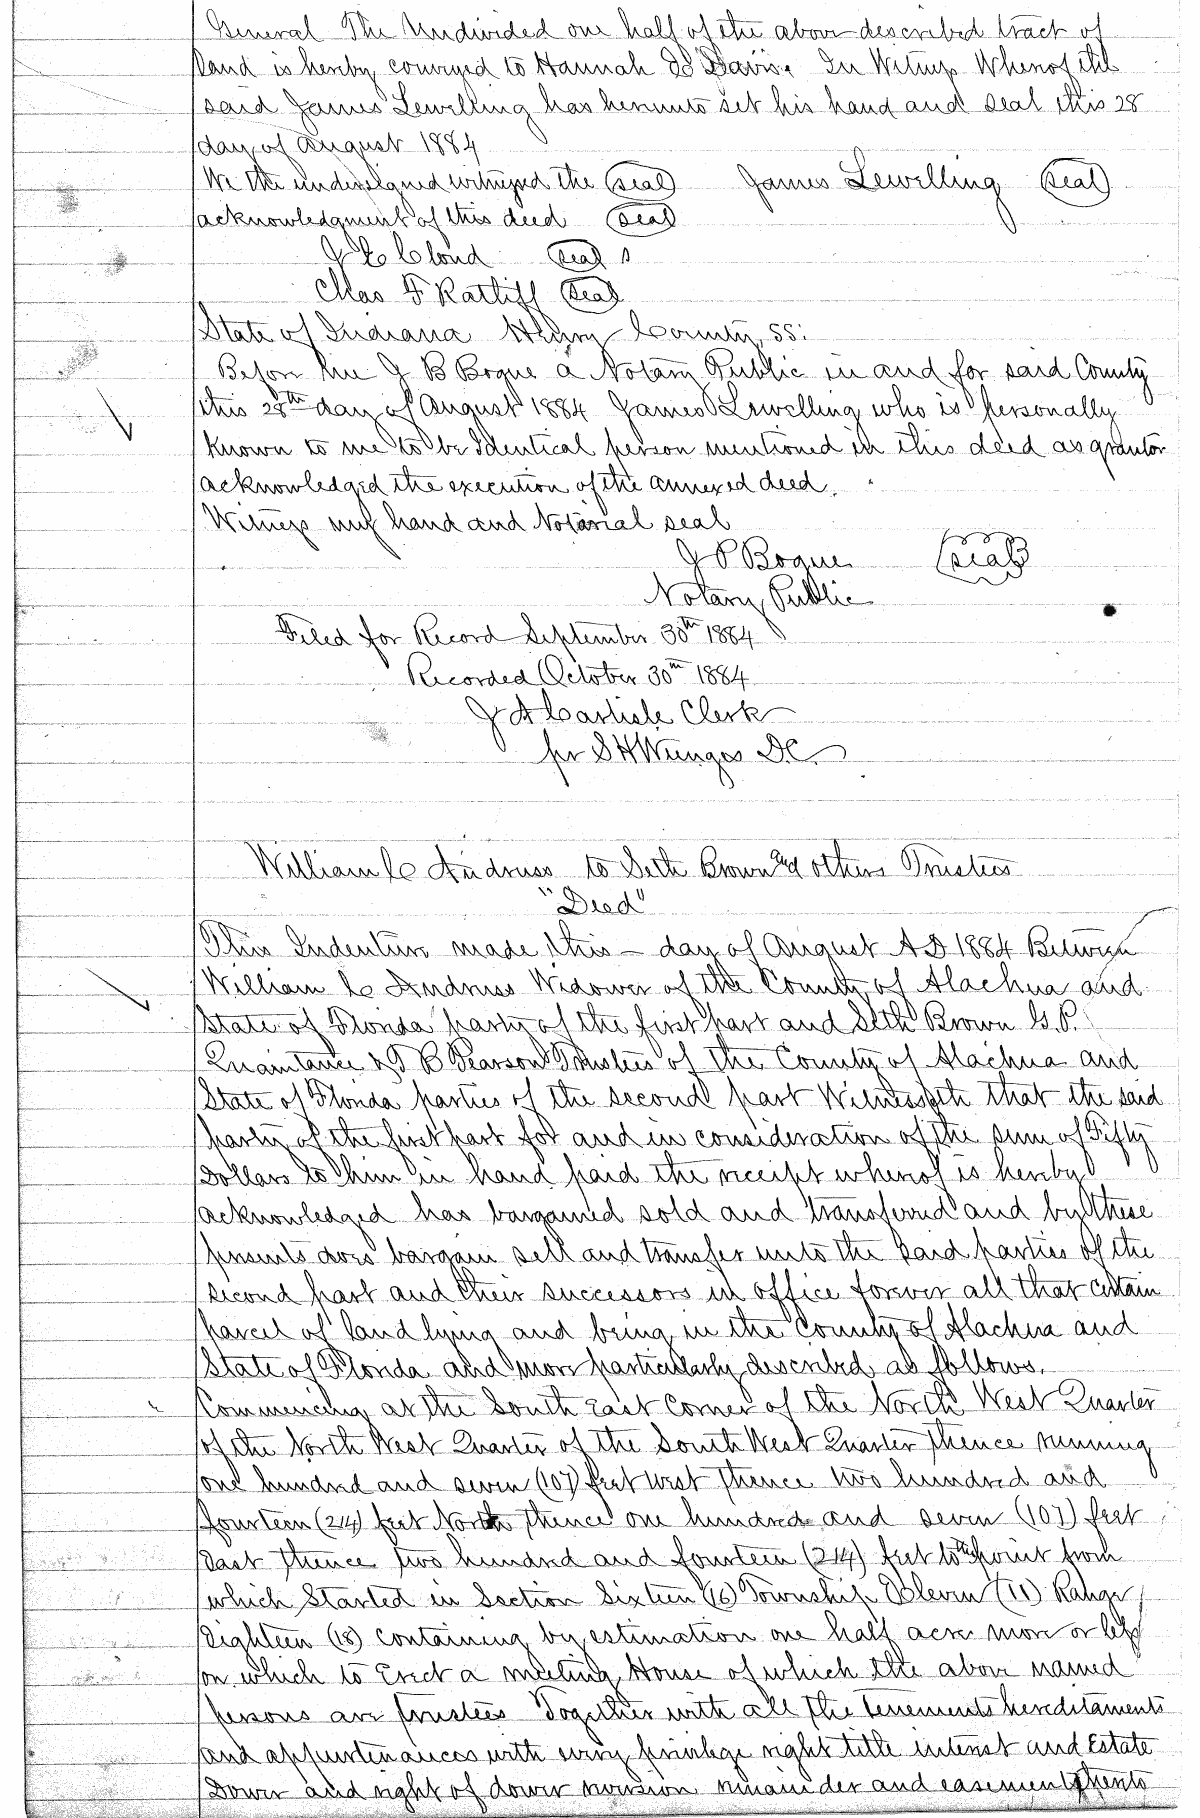 General The Undivided one half of the above described tract of
Land is hereby conveyed to Hannah Davis. In Witness Whereof the
said James Lewelling has hereunto set his hand and seal this 28
day of August 1884
We the undersigned witnessed the (seal) James Lewelling (seal)
acknowledgment of this deed (seal)
J E Cloud (seal)
Chas F Ratliff (seal)
State of Indiana Henry County, SS:
Before me J B Bogue a Notary Public in and for said County
this 28th day of August 1884 James Lewelling who is personally
known to me to be Identical person mentioned in this deed as grantor
acknowledged the execution of the annexed deed.
Witness my hand and Notarial seal
J P Bogue (seal)
Notary Public
Filed for Record September 30th 1884
Recorded October 30th 1884
J A Carlisle Clerk
pr S H Wienges D.C.
William C Andruss to Seth Brown and others Trustees
"Deed"
This Indenture made this – day of August A D 1884 Between
William C Andruss Widower of the County of Alachua and
State of Florida party of the first part and Seth Brown G. P.
Quaintance & J B Pearson Trustees of the County of Alachua and
State of Florida parties of the second part Witnesseth that the said
party of the first part for and in consideration of the sum of Fifty
Dollars to him in hand paid the receipt whereof is hereby
acknowledged has bargained sold and transferred and by these
presents does bargain sell and transfer unto the said parties of the
second part and their successors in office forever all that certain
parcel of land lying and being in the County of Alachua and
State of Florida and more particularly described as follows.
Commencing at the South East Corner of the North West Quarter
of the North West Quarter of the South West Quarter thence running
one hundred and seven (107) feet West thence two hundred and
fourteen (214) feet North thence one hundred and seven (107) feet
East thence two hundred and fourteen (214) feet to the point from
which Started in Section Sixteen (16) Township Eleven (11) Range
Eighteen (18) containing by estimation one half acre more or less
on which to Erect a meeting House of which the above named
persons are trustees Together with all the tenements hereditaments
and appurtenances with every privilege right title interest and Estate
Dower and right of dower reversion remainder and easement